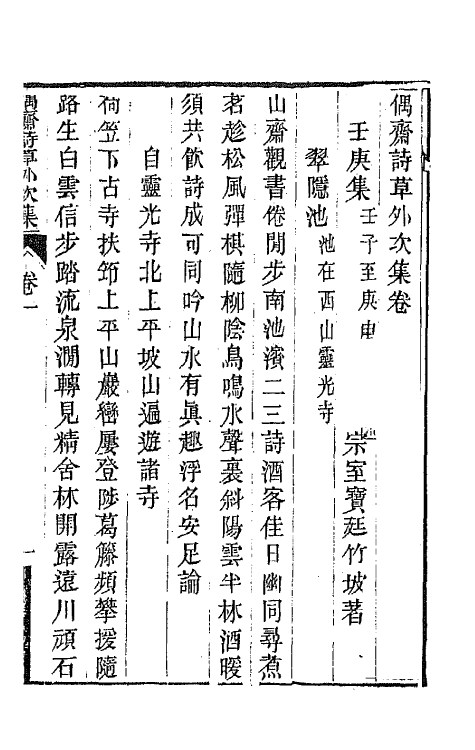 偶齋詩草外次集卷
壬庚集 壬子至庚申
宗室寶廷竹坡著
翠隱池 池在西山靈光寺
山齋觀書倦閒步南池濱二三詩酒客佳日幽同尋煮
茗趁松風彈棋隨柳陰鳥鳴水聲裏斜陽雲半林酒暖
須共飲詩成可同吟山水有眞趣浮名安足論
自靈光寺北上平坡山遍遊諸寺
荷笠下古寺扶笻上平山巖巒屢登陟葛籐頻攀援隨
路生白雲信步踏流泉澗轉見精舍林開露遠川頑石
偶齋詩草外次集 卷一 一